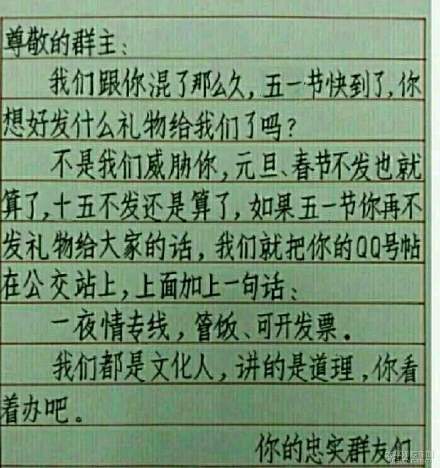 尊敬的群主：
我们跟你混了那么久，五一节快到了，你
想好发什么礼物给我们了吗？
不是我们威胁你，元旦、春节不发也就
算了，十五不发还是算了，如果五一节你再不
发礼物给大家的话，我们就把你的QQ号帖
在公交站上，上面加上一句话：
一夜情专线，管饭、可开发票。
我们都是文化人，讲的是道理，你看
着办吧。
你的忠实群友们